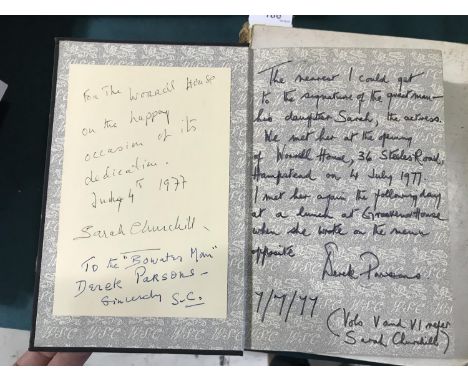 For The Worrall House
on the happy
occasion of its
dedication.
July 4th 1977
Sarah Churchill.
To the "Bowater Man"
Derek Parsons -
Sincerely S.C.
The nearest I could get
to the signature of the great man -
his daughter Sarah, the actress.
We met her at the opening
of House, 36 Steeles Road,
Hampstead on 4 July 1977.
I met her again the following day
at a lunch at Grosvenor House
when she wrote on the menu
opposite
Derek Parsons
7/7/77
(Vols V and VI refer
Sarah Churchill)